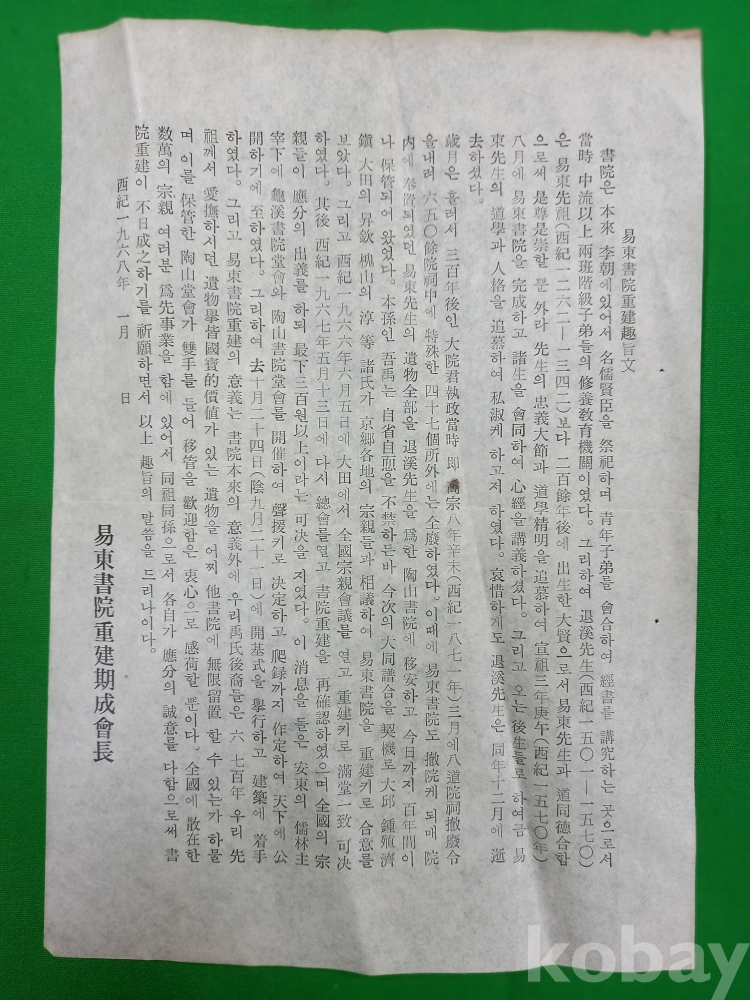 易東書院重建趣旨文
書院은 本來 李朝에있어서 名儒賢臣을 祭祀하며 青年子弟를 會合하여 經書를 講究하는 곳으로서
當時 中流以上 兩班階級子弟들의 修養敎育機關이였다。그리하여 退溪先生(西紀一五〇一—一五七〇)
은 易東先祖(西紀一二六二—一三四二)보다 二百餘年後에 出生한大賢으로서 易東先生과 道同德合함
으로써 是尊是崇할 뿐 外라 先生의 忠義大節과 道學精明을 追慕하여 宣祖三年庚午(西紀一五七〇年)
八月에 易東書院을 完成하고 諸生을 會同하여 心經을 講義하셨다。그리고 오는 後生들로 하여금 易
東先生의 道學과 人格을 追慕하여 私淑케 하고저 하였다。哀惜하게도 退溪先生은 同年十二月에 逝
去하셨다。
歲月은 흘러서 三百年後인 大院君執政當時 即 高宗八年辛未(西紀一八七一年)三月에八道院祠撤廢令
을내려 六五〇餘院祠中에 特殊한 四十七個所外에는全廢하였다。이때에 易東書院도 撤院케 되매 院
內에 奉置되었던 易東先生의 遺物全部을 退溪先生을 爲한 陶山書院에 移安하고 今日까지 百年間이
나 保管되어 왔었다。本孫인 吾禹는 自省自愿을 不禁하는바 今次의 大同譜合을 契機로 大邱 鍾殖濟
鎭 大田의 昇欽 樵山의 淳 等 諸氏가 京鄉各地의 宗親들과 相議하여 易東書院을 重建키로 合意를
보았다。그리고 西紀一九六六年六月五日에 大田에서 全國宗親會議를 열고 重建키로 滿堂一致 可決
하였다。其後 西紀一九六七年五月十三日에 다시 總會를열고 書院重建을 再確認하였으며 全國의 宗
親들이 應分의 出義를 하되 最下三百원以上이라는 可決을 지였다。이 消息을 들은 安東의 儒林主
宰下에 龜溪書院堂會와 陶山書院堂會를 開催하여 聲援키로 決定하고 爬錄까지 作定하여 天下에 公
開하기에 至하였다。그리하여 去十月二十四日(陰九月二十一日)에 開基式을 擧行하고 建築에 着手
하였다。그리고 易東書院重建의 意義는 書院本來의 意義外에 우리禹氏後裔들은 六、七百年 우리 先
祖께서 愛撫하시던 遺物擧皆國寶的價値가 있는 遺物을 어찌 他書院에 無限留置 할 수 있는가 하물
며 이를 保管한 陶山堂會가 雙手를 들어 移管을 歡迎함은 衷心으로 感荷할 뿐이다。全國에 散在한
数萬의 宗親 여러분 爲先事業을 함에 있어서 同祖同孫으로서 各自가 應分의 誠意를 다함으로써 書
院重建이 不日成之하기를 祈願하면서 以上 趣旨의 말씀을 드리나이다。
西紀一九六八年 一月 日
易東書院重建期成會長
kobay